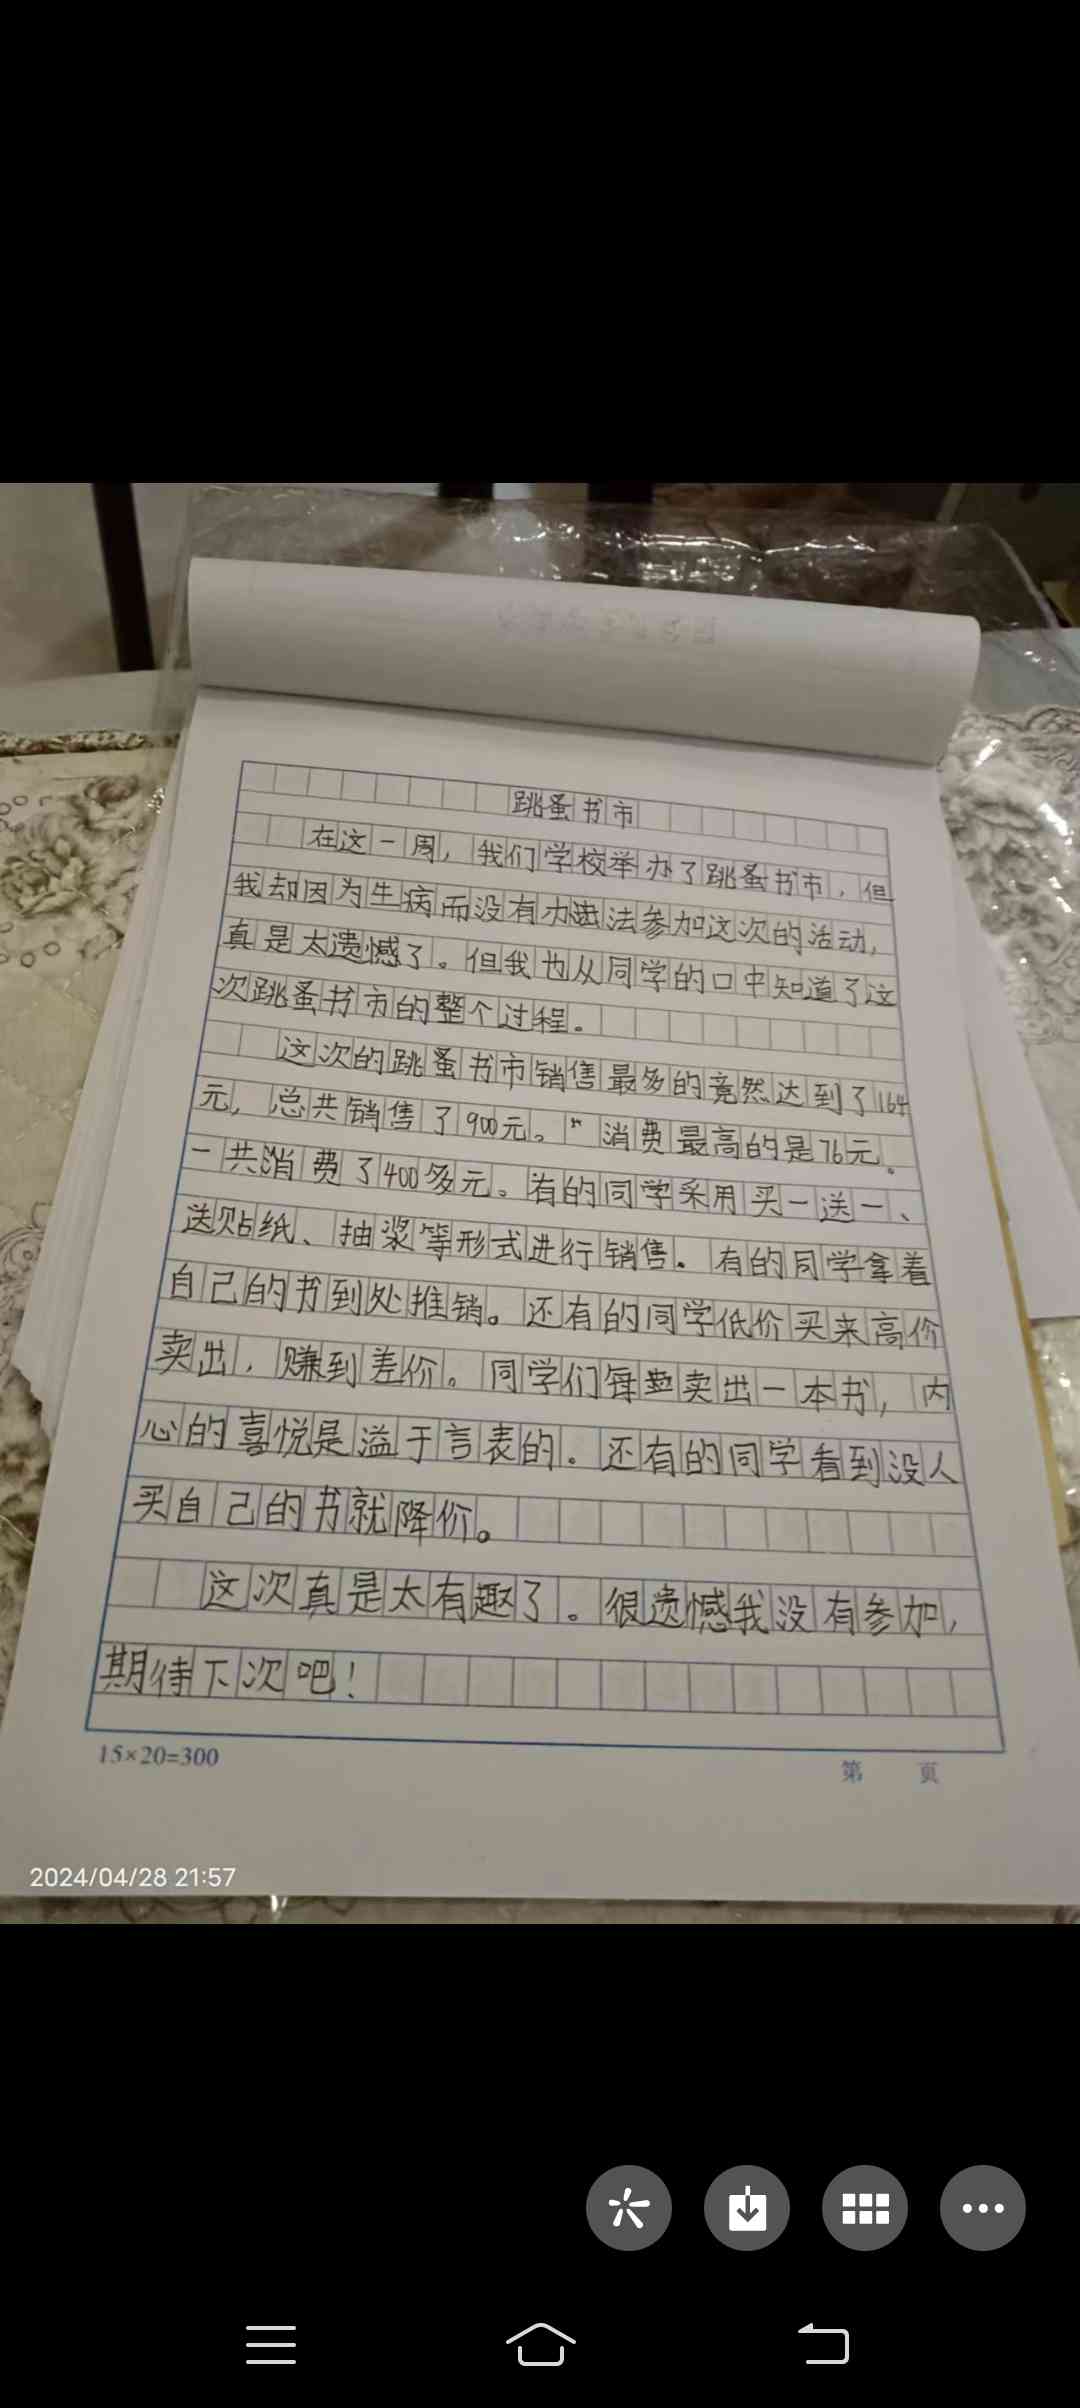 跳蚤书市
在这一周，我们学校举办了跳蚤书市，但
我却因为生病而没有办法参加这次的活动，
真是太遗憾了。但我也从同学的口中知道了这
次跳蚤书市的整个过程。
这次的跳蚤书市销售最多的竟然达到了164
元，总共销售了900元。消费最高的是76元。
一共消费了400多元。有的同学采用买一送一、
送贴纸、抽浆等形式进行销售。有的同学拿着
自己的书到处推销。还有的同学低价买来高价
卖出，赚到差价。同学们每卖出一本书，内
心的喜悦是溢于言表的。还有的同学看到没人
买自己的书就降价。
这次真是太有趣了。很遗憾我没有参加，
期待下次吧！
15×20=300
第 页
2024/04/28 21:57